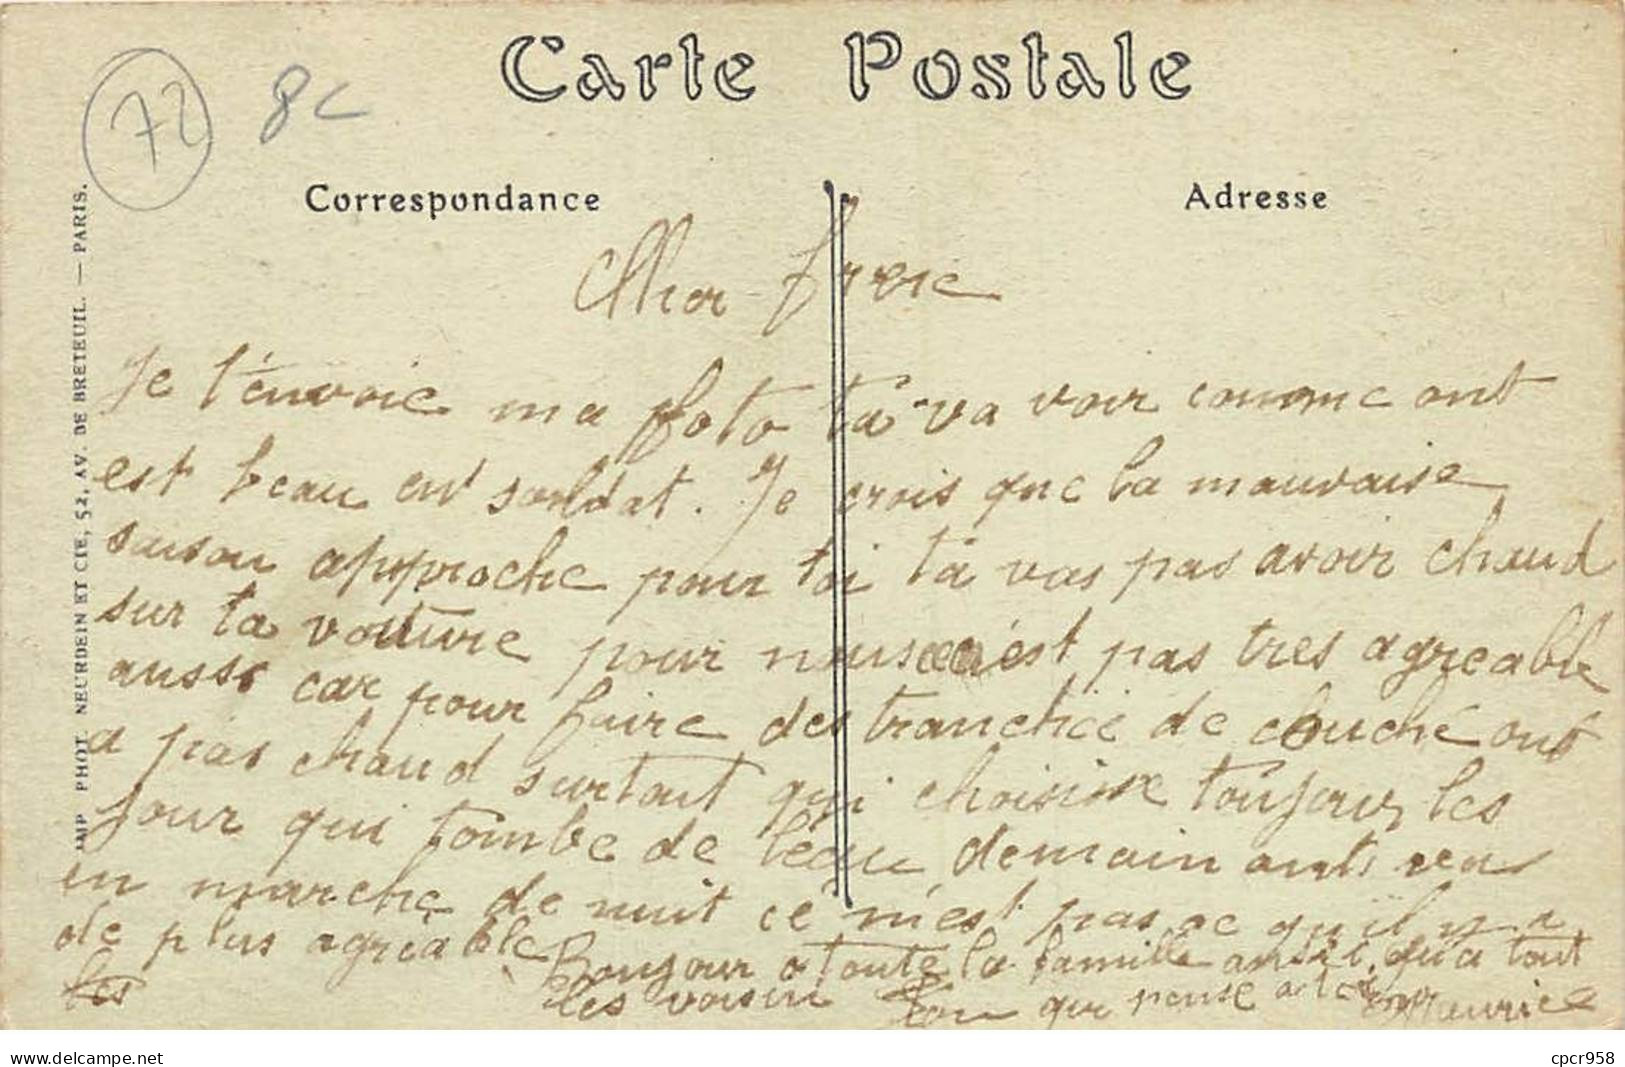 Carte Postale
72
8c
Correspondance
Adresse
IMP PHOT. NEURDEIN ET CIE, 52, AV. DE BRETEUIL. — PARIS.
Cher frere
Je t'envoie ma foto ta va voir comme ont
est beau en soldat. Je crois que la mauvaise
saison approche pour toi ta vas pas avoir chaud
sur ta voiture pour nous c'est pas tres agreable
aussi car pour faire des tranchée de couché ont
a pas chaud surtout qui choisise toujour les
jour qui tombe de l'eau demain ont
en marche de nuit ce n'est pas ce qu'il y a
de plus agréable Bonjour a toute la famille aussi qu'a tout
les voisin Ton qui pense a toi Meurice
delcampe.net
cpcr958